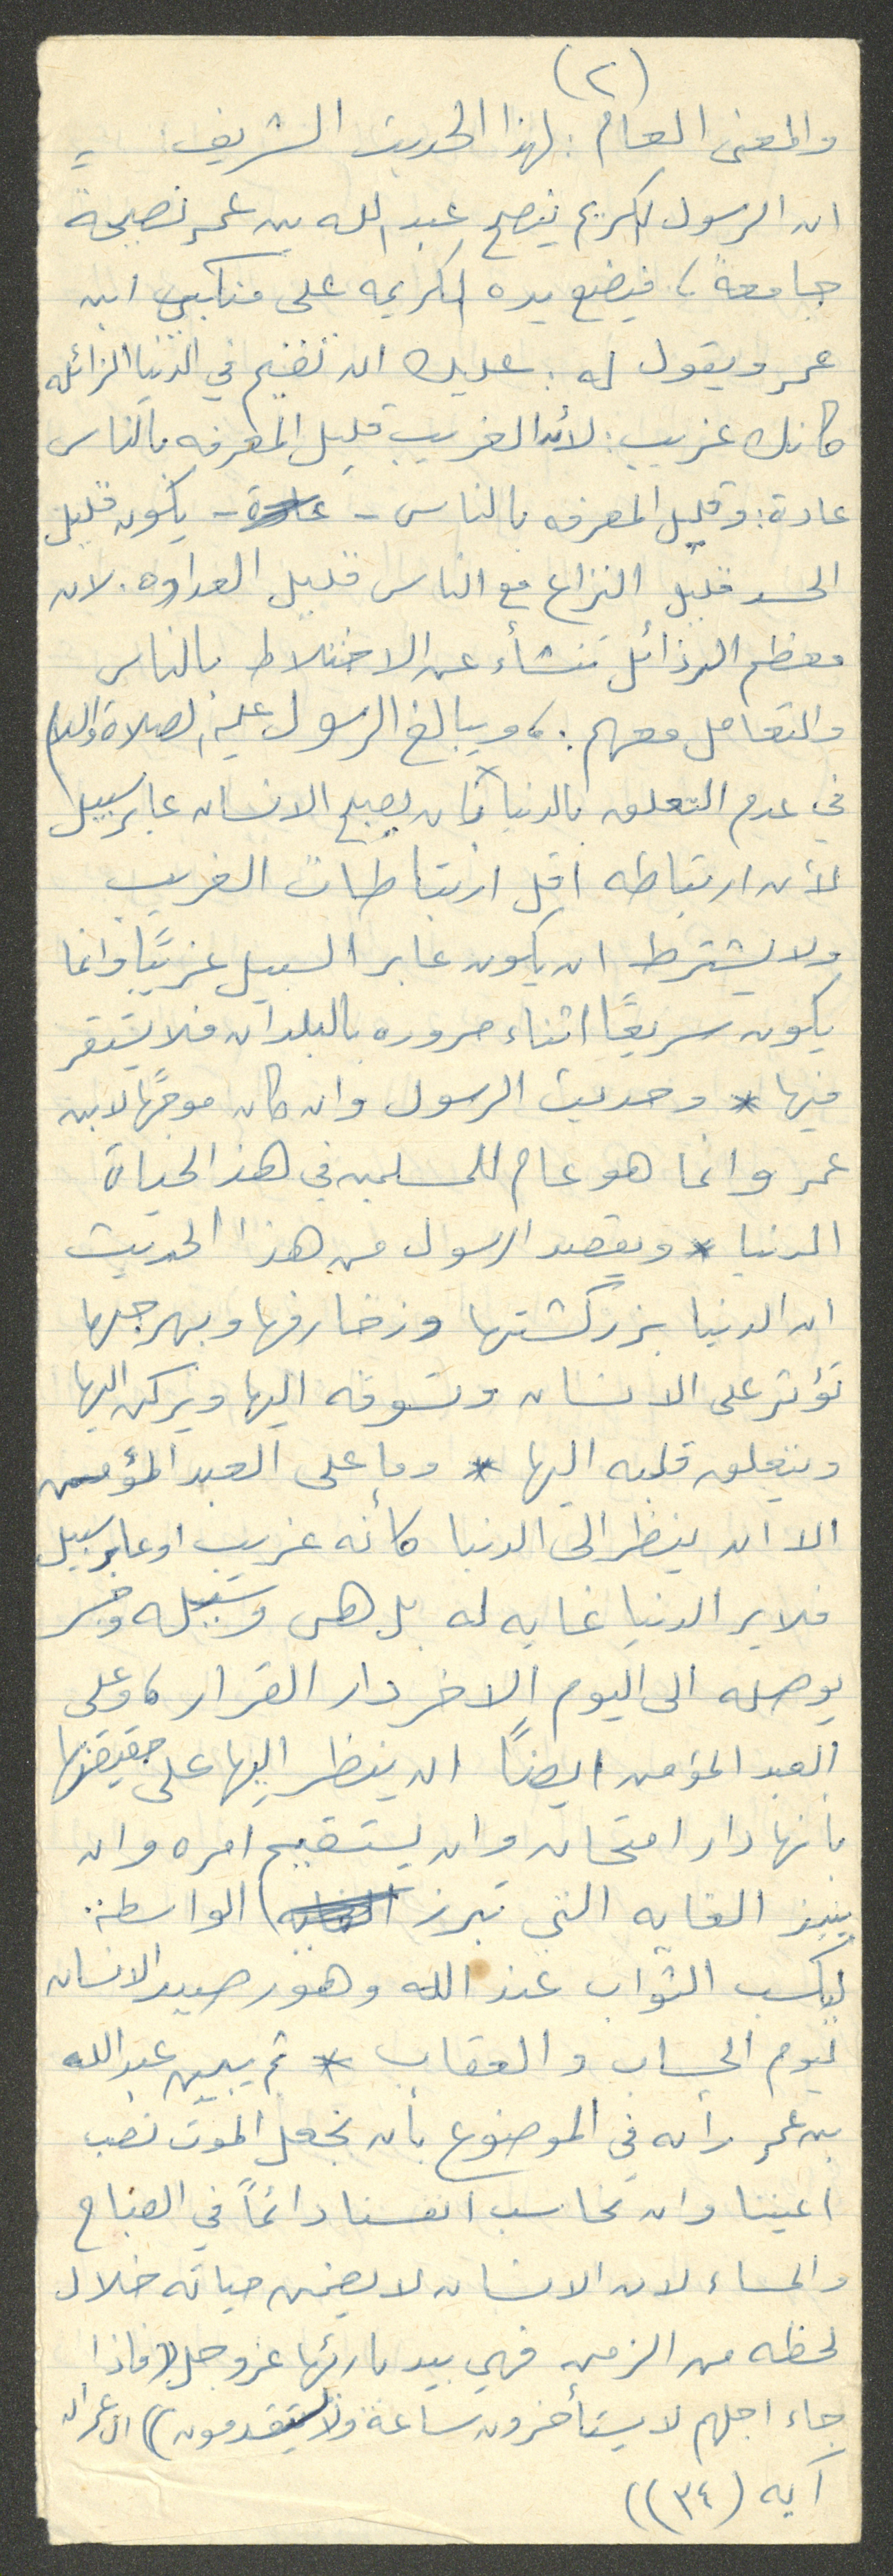 (٢)
والمعنى العام : لهذا الحديث الشريف =
ان الرسول الكريم ينصح عبد الله بن عمر نصيحة
جامعة ، فيضع يده الكريمه على منكبي ابن
عمر ويقول له : عليك ان تقيم في الدنيا الزائله
كأنك غريب : لأن الغريب قليل المعرفه بالناس
عادة : وقليل المعرفه بالناس - عادة - يكون قليل
الحسد قليل النزاع مع الناس قليل العداوه . لان
معظم الرذائل تنشأ عن الاختلاط بالناس
والتعامل معهم . ، ويبالغ الرسول عليه الصلاة والسلام
في عدم التعلق بالدنيا بأن يصبح الانسان عابر سبيل
لأن ارتباطه اقل ارتباطات الغريب
ولا يشترط ان يكون عابر السبيل غريبًا وانما
يكون سريعًا اثناء مروره بالبلدان فلا يستقر
فيها * وحديث الرسول وان كان موجهًا لابن
عمر وانما هو عام للمسلمين في هذ الحياة
الدنيا * ويقصد الرسول من هذا الحديث
ان الدنيا بزركشتها وزخارفها وبهرجها
تؤثر على الانسان وتشوقه اليها ويركن اليها
ويتعلق قلبه اليها * وما على العبد المؤمن
الا ان ينظر الى الدنيا كأنه غريب او عابر سبيل
فلا ير الدنيا غايه له بل هى وسيله وجسر
يوصله الى اليوم الاخر دار القرار ، وعلى
العبد المؤمن ايضاً ان ينظر اليها على حقيقتها
بأنها دار امتحان وان يستقيم امره وان
الغايه التي تبرز الواسطة
ليكسب الثواب عند الله وهو رصيد الانسان
ليوم الحساب والعقاب * ثم يبين عبدالله
بن عمر رأيه في الموضوع بأن نجعل الموت نصب
اعيننا وان نحاسب انفسنا دائماً في الصباح
والمساء لان الانسان لا يضمن حياته خلال
لحظه من الزمن فهي بيد بارئها عز وجل (( فاذا
جاء اجلهم لا يستأخرون ساعة ولا يستقدمون )) الاعراف
آيه (٣٤))